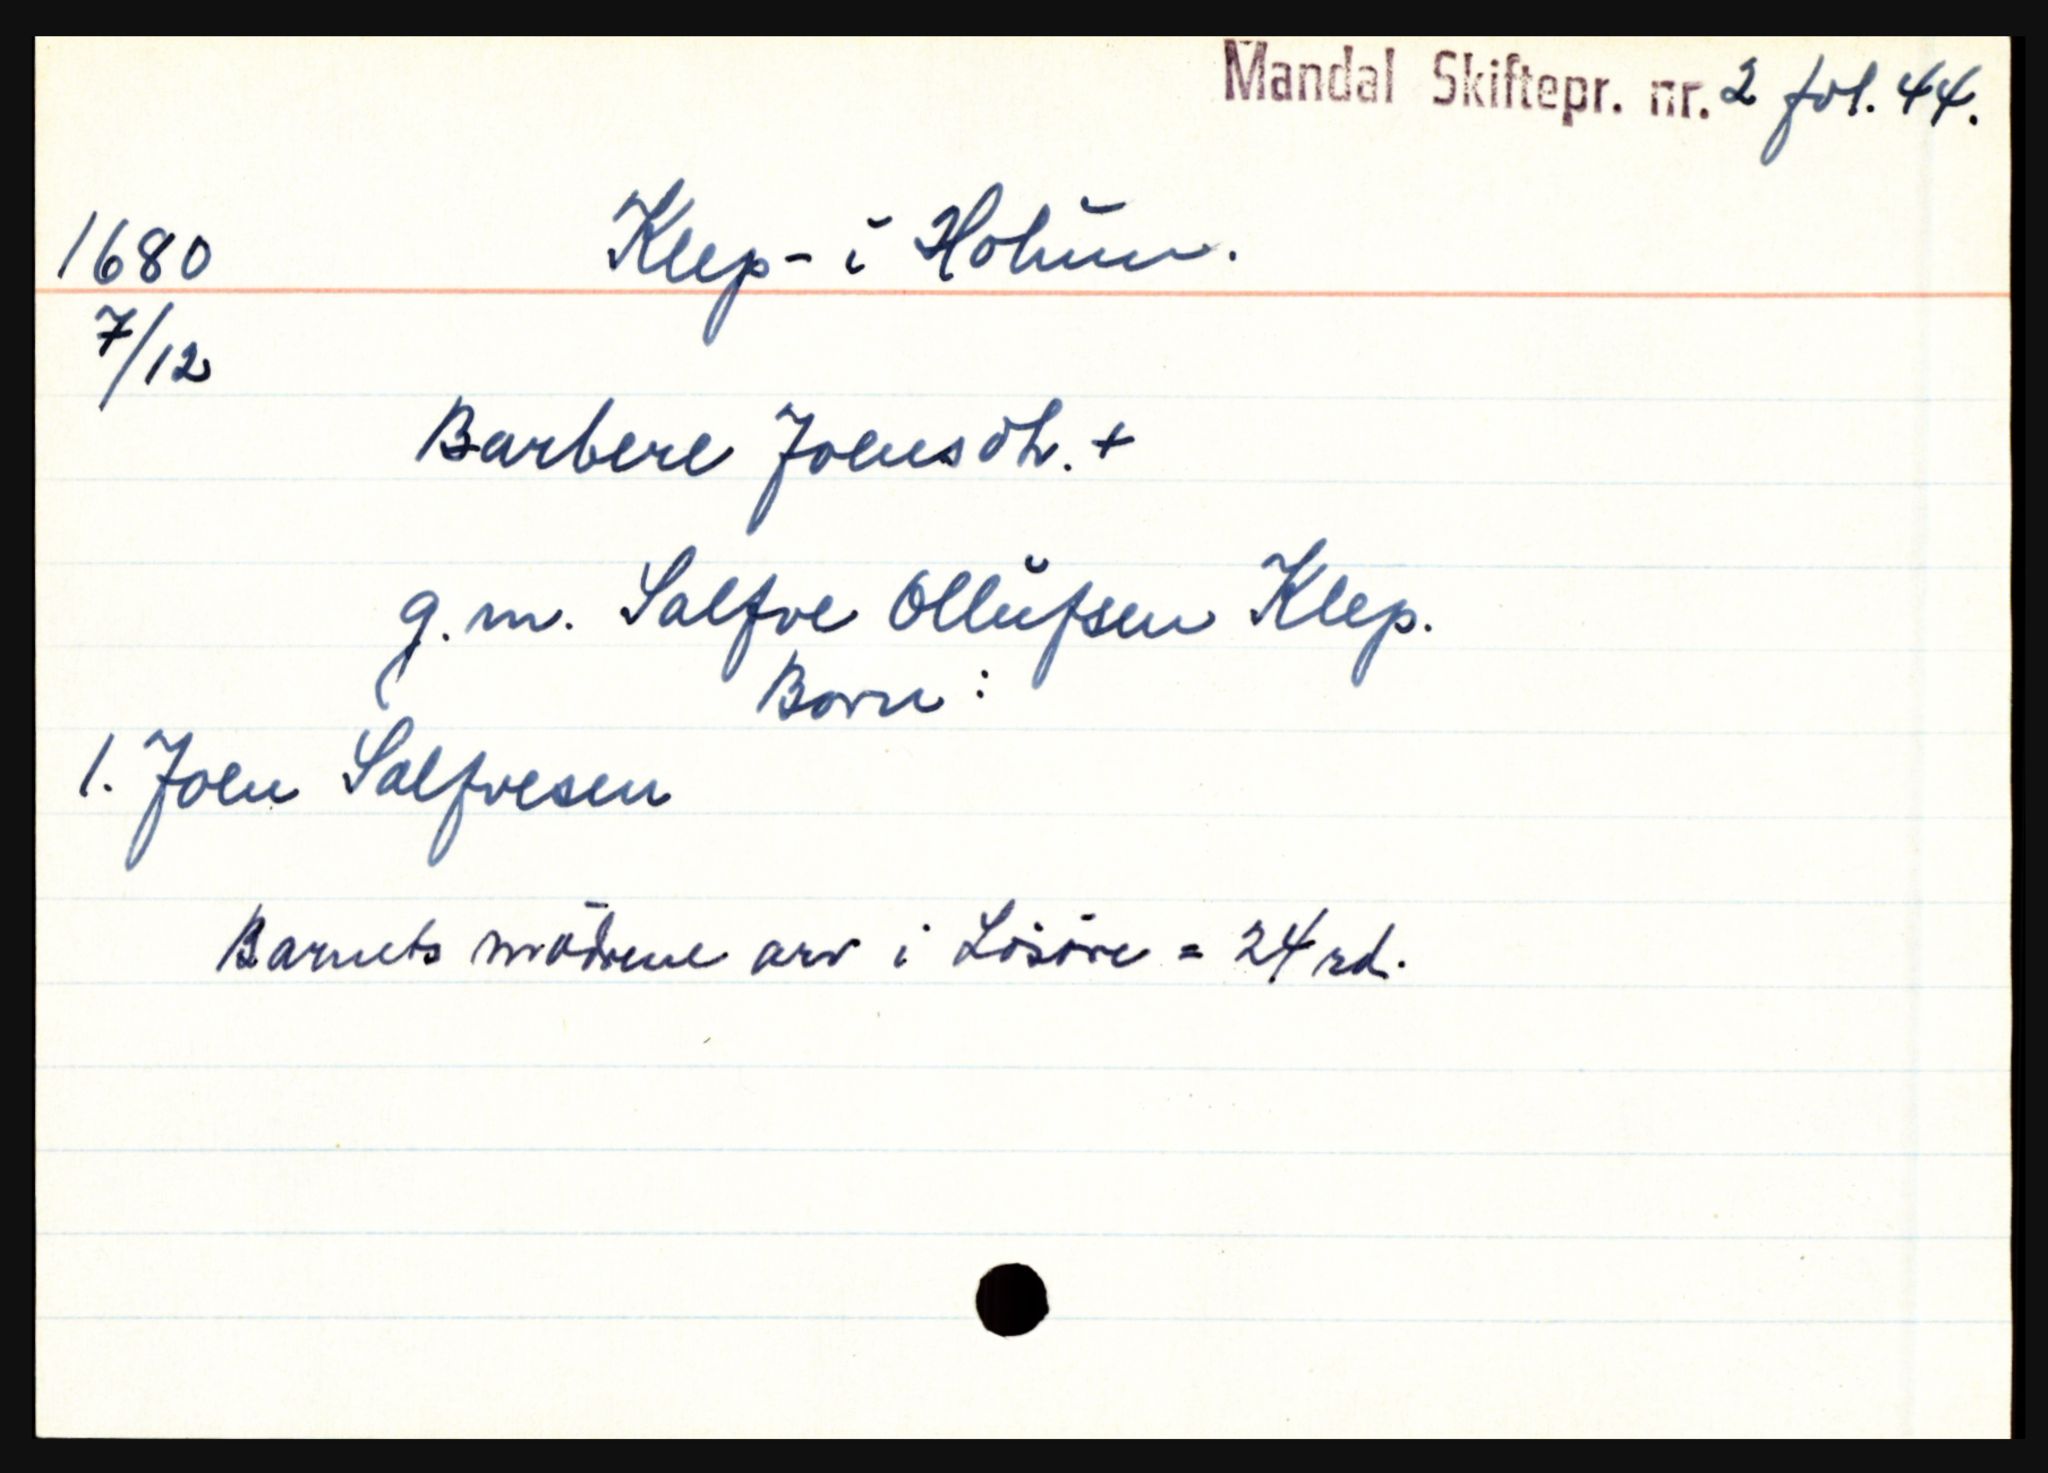 Mandal Skiftepr. nr. 2 fol. 44.
1680 Klep - i Holum.
7/12
Barbere Joensdtr. +
g. m. Salfve Ollufsen Klep.
Born:
1. Joen Salfvesen
Barnets mödrene arv i Lösöre = 24 rd.